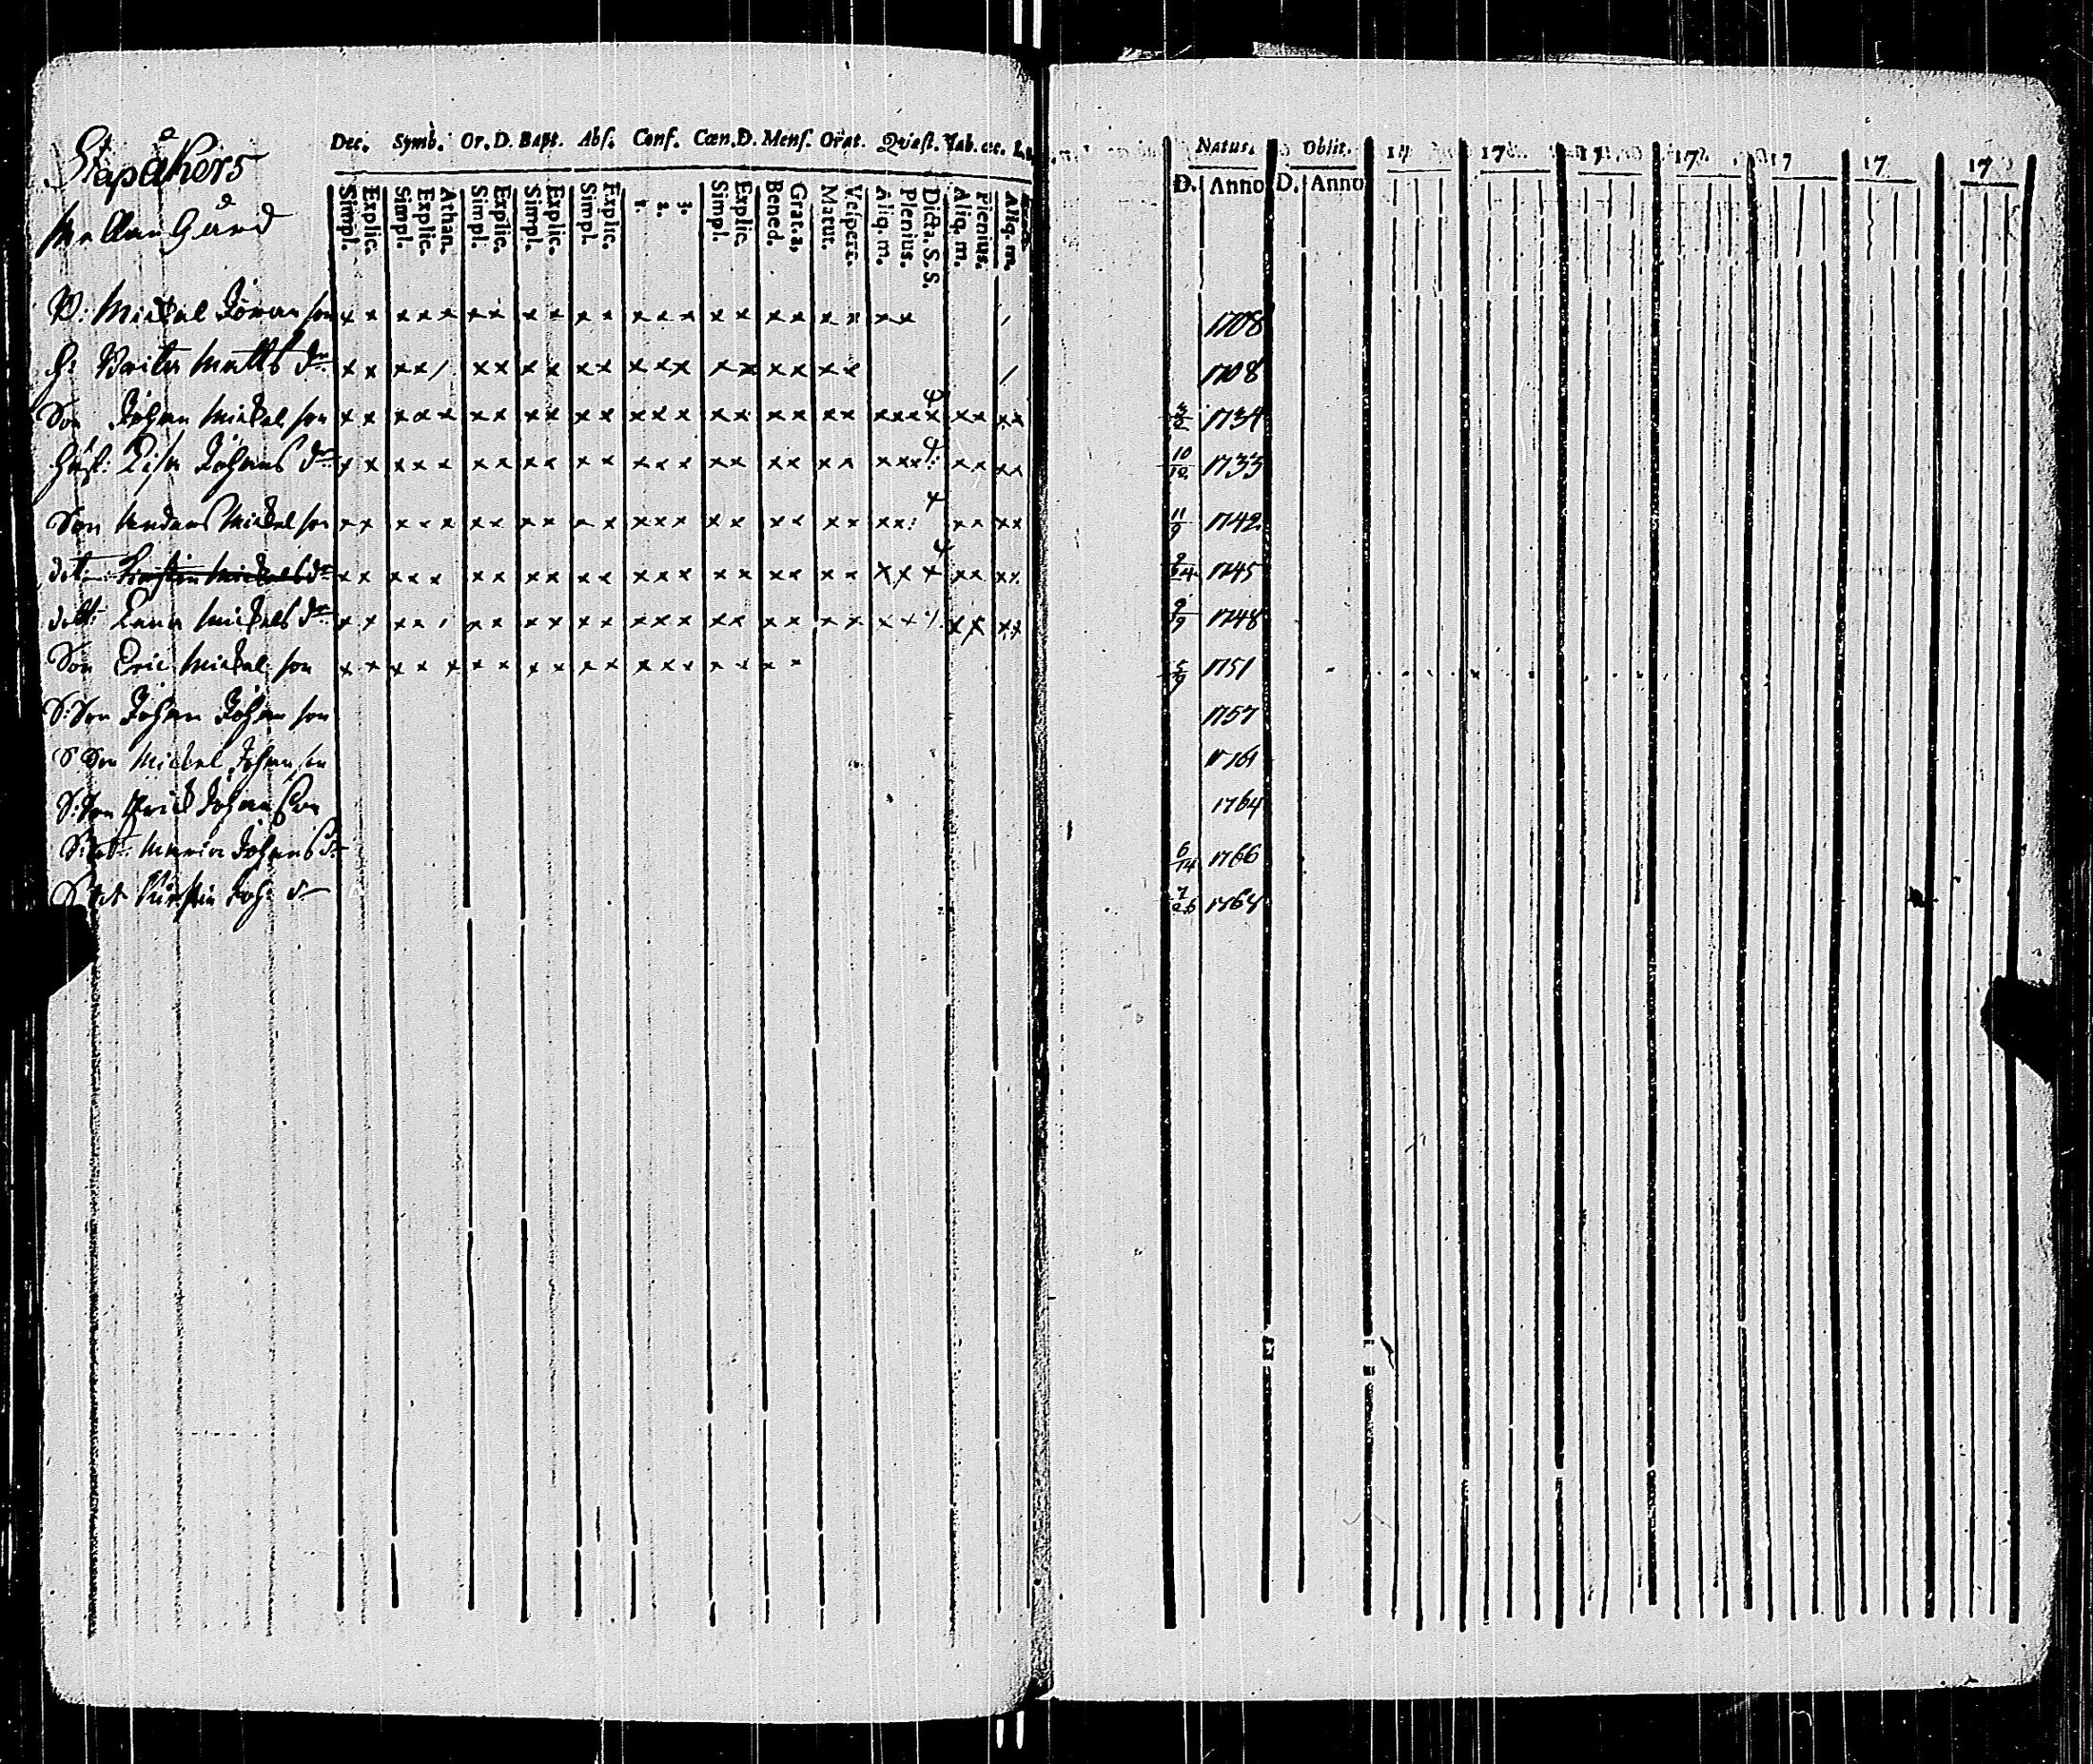 Stapåkers
Mellangård
Dec. Symb. Or. D. Bapt. Abs. Conf. Cœn. D. Mens. Orat. Quæst. Tab. œc.
Simpl. Explic. Simpl. Explic. Athan. Simpl. Explic. Simpl. Explic. Simpl. Explic. 1. 2. 3. Simpl. Explic. Bened. Grat. a. Matut. Vespert. Aliq. m. Plenius. Dicta. S. S. Aliq. m. Plenius. Aliq. m.
Natus. Oblit. 17 17 17 17 17 17 17
D. Anno D. Anno
Mickel Göran son x x x x x x x x x x x x x x x x x x x x x x / 1708
H: Matts dr x x x x / x x x x x x x x x x x x x x x / 1708
Son Johan Mickel son x x x x x x x x x x x x x x x x x x x x x x x x x x x x 1734
Hust: Lisa Johans dr x x x x x x x x x x x x x x x x x x x x x x x x x x x 10/12 1733
Son Anders Mickel son x x x x x x x x x x x x x x x x x x x x x x : x x x x 11/9 1742
dot: Kirstin Mickels dr x x x x x x x x x x x x x x x x x x x x x x x x x x x 1745
dott: Lena Mickels dr x x x x / x x x x x x x x x x x x x x x x x x x x x 9/7 1748
Son Eric Mickel son x x x x x x x x x x x x x x x x x x 5/9 1751
S: Son Johan Johan son 1757
S Son Mickel Johan son 1761
S: Son Erick Johan Son 1764
S: dot: Maria Johans dr 6/14 1766
S dot Kirstin Joh: dr 7/26 1768